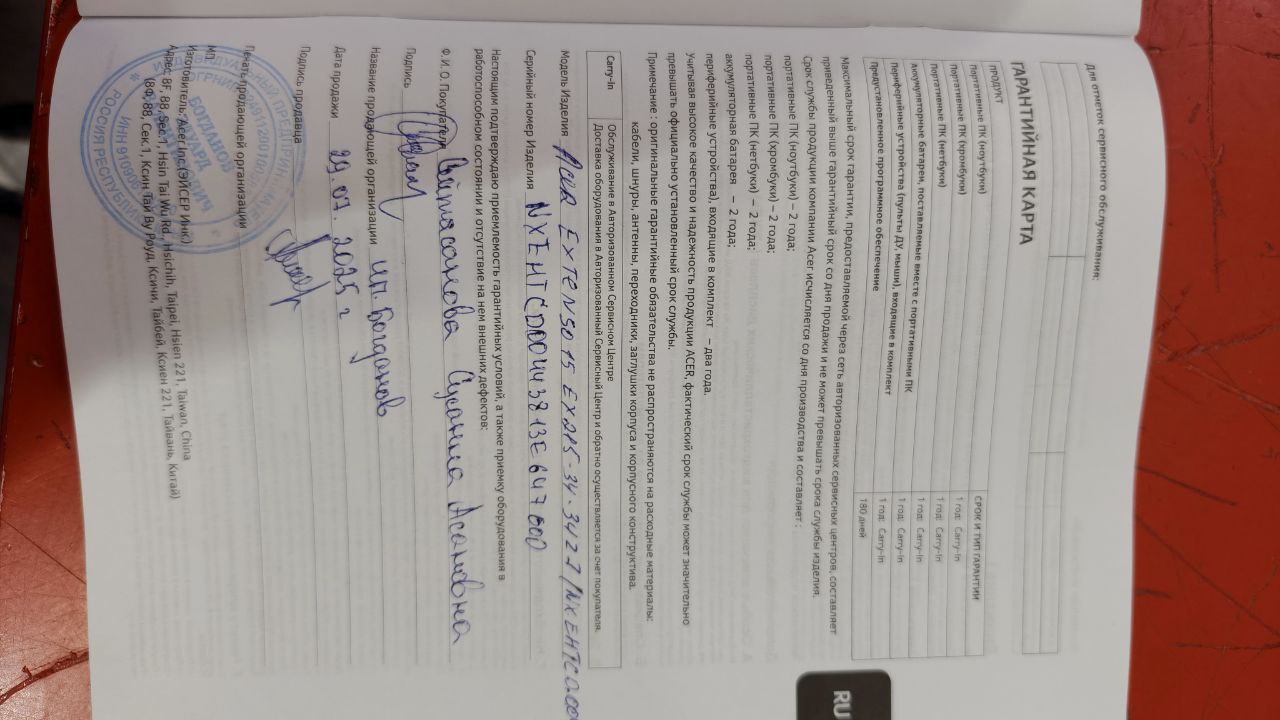 Для отметок сервисного обслуживания:
ГАРАНТИЙНАЯ КАРТА
ПРОДУКТ СРОК И ТИП ГАРАНТИИ
Портативные ПК (ноутбуки) 1 год: Carry-In
Портативные ПК (хромбуки) 1 год: Carry-In
Портативные ПК (нетбуки) 1 год: Carry-In
Аккумуляторные батареи, поставляемые вместе с портативными ПК 1 год: Carry-In
Периферийные устройства (пульты ДУ, мыши), входящие в комплект 1 год: Carry-In
Предустановленное программное обеспечение 180 дней
Максимальный срок гарантии, предоставляемой через сеть авторизованных сервисных центров, составляет
приведенный выше гарантийный срок со дня продажи и не может превышать срока службы изделия.
Срок службы продукции компании Acer исчисляется со дня производства и составляет :
портативные ПК (ноутбуки) – 2 года;
портативные ПК (хромбуки) – 2 года;
портативные ПК (нетбуки) – 2 года;
аккумуляторная батарея – 2 года;
периферийные устройства), входящие в комплект – два года.
Учитывая высокое качество и надежность продукции ACER, фактический срок службы может значительно
превышать официально установленный срок службы.
Примечание : оригинальные гарантийные обязательства не распространяются на расходные материалы:
кабели, шнуры, антенны, переходники, заглушки корпуса и корпусного конструктива.
Carry-In Обслуживание в Авторизованном Сервисном Центре
Доставка оборудования в Авторизованный Сервисный Центр и обратно осуществляется за счет покупателя.
Модель Изделия Acer EXTENSO 15 EX215-34-3422/NX.EHTCD.00
Серийный номер Изделия NXEHTCD00443813E647600
Настоящим подтверждаю приемлемость гарантийных условий, а также приемку оборудования в
работоспособном состоянии и отсутствие на нем внешних дефектов:
Ф.И.О.Покупателя Асановна
Подпись
Название продающей организации ИП. Богданов
Дата продажи 29.07.2025 г
Подпись продавца
Печать продающей организации
МП
Изготовитель: Acer Inc.(ЭЙСЕР ИНК)
Адрес 8F, 88, Sec.1, Hsin Tai Wu Rd., Hsichih, Taipei, Hsien 221, Taiwan, China
(8Ф, 88, Сек.1, Ксин Тай Ву Роуд, Ксичи, Тайбей, Ксиен 221, Тайвань, Китай)
БОГДАНОВ
ИНН
РОССИЯ
RU